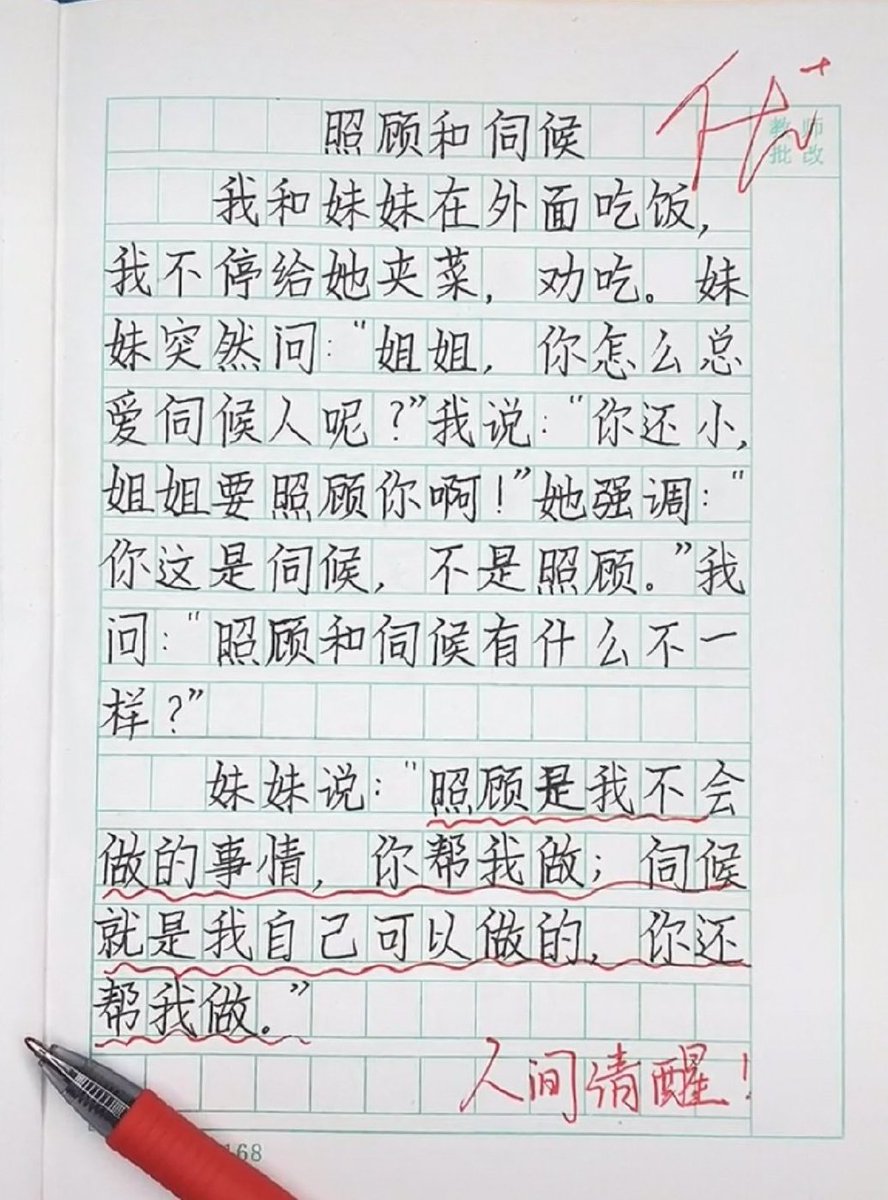 优+
教师
批改
照顾和伺候
我和妹妹在外面吃饭，
我不停给她夹菜，劝吃。妹
妹突然问："姐姐，你怎么总
爱伺候人呢？"我说："你还小，
姐姐要照顾你啊！"她强调："
你这是伺候，不是照顾。"我
问："照顾和伺候有什么不一
样？"
妹妹说："照顾是我不会
做的事情，你帮我做；伺候
就是我自己可以做的，你还
帮我做。"
人间清醒！
168